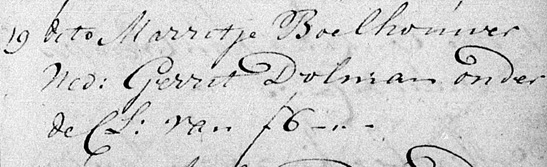 19 dcto Marritje Boelhouwer
Wed: Gerrit Dolman onder
de Cl: van f6-"-"-